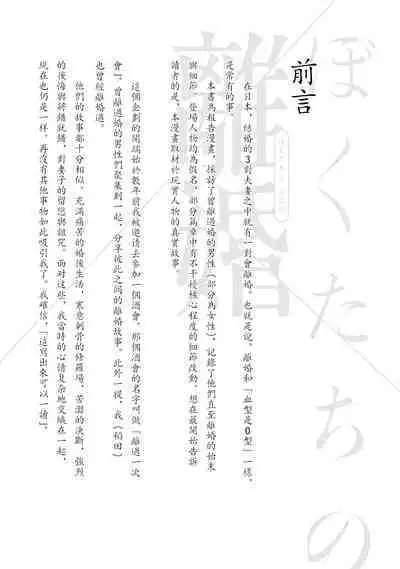 ぼくたちの
離婚
前言
在日本，結婚的3對夫妻之中就有一對會離婚。也就是說，離婚和「血型是O型」一樣，
是常有的事。
本書為報告漫畫，採訪了曾離過婚的男性（部分為女性），記錄了他們直至離婚的始末
與細節。登場人物均為假名，部分篇章中有不干擾核心程度的細節改動。想在最開始告訴
讀者的是，本漫畫取材於現實人物的真實故事。
這個企劃的開端始於數年前我被邀請去參加一個酒會。那個酒會的名字叫做「離過一次
會」，曾離過婚的男性們聚集到一起，分享彼此之間的離婚故事。此外一提，我（稻田）
也曾經離過婚。
他們的故事都十分相似。充滿痛苦的婚後生活，寒意刺骨的修羅場，苦澀的決斷，強烈
的後悔與將錯就錯，對妻子的留戀與詛咒。面對這些，我當時的心情复杂地交織在一起，
現在也仍是一樣，再沒有其他事物如此吸引我了。我確信，「這寫出來可以一讀」。